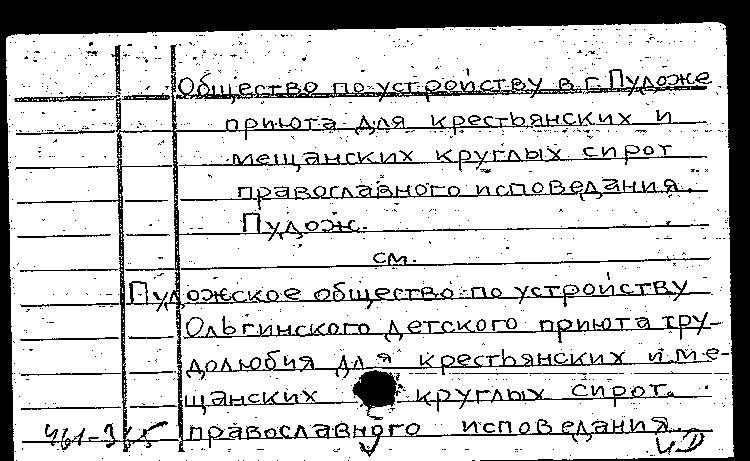 Общество по устройству в г. Пудоже
приюта для крестьянских и
мещанских круглых сирот
православного исповедания.
Пудож.
см.
Пудожское общество по устройству
Ольгинского детского приюта тру-
долюбия для крестьянских и ме-
щанских круглых сирот.
православного исповедания.